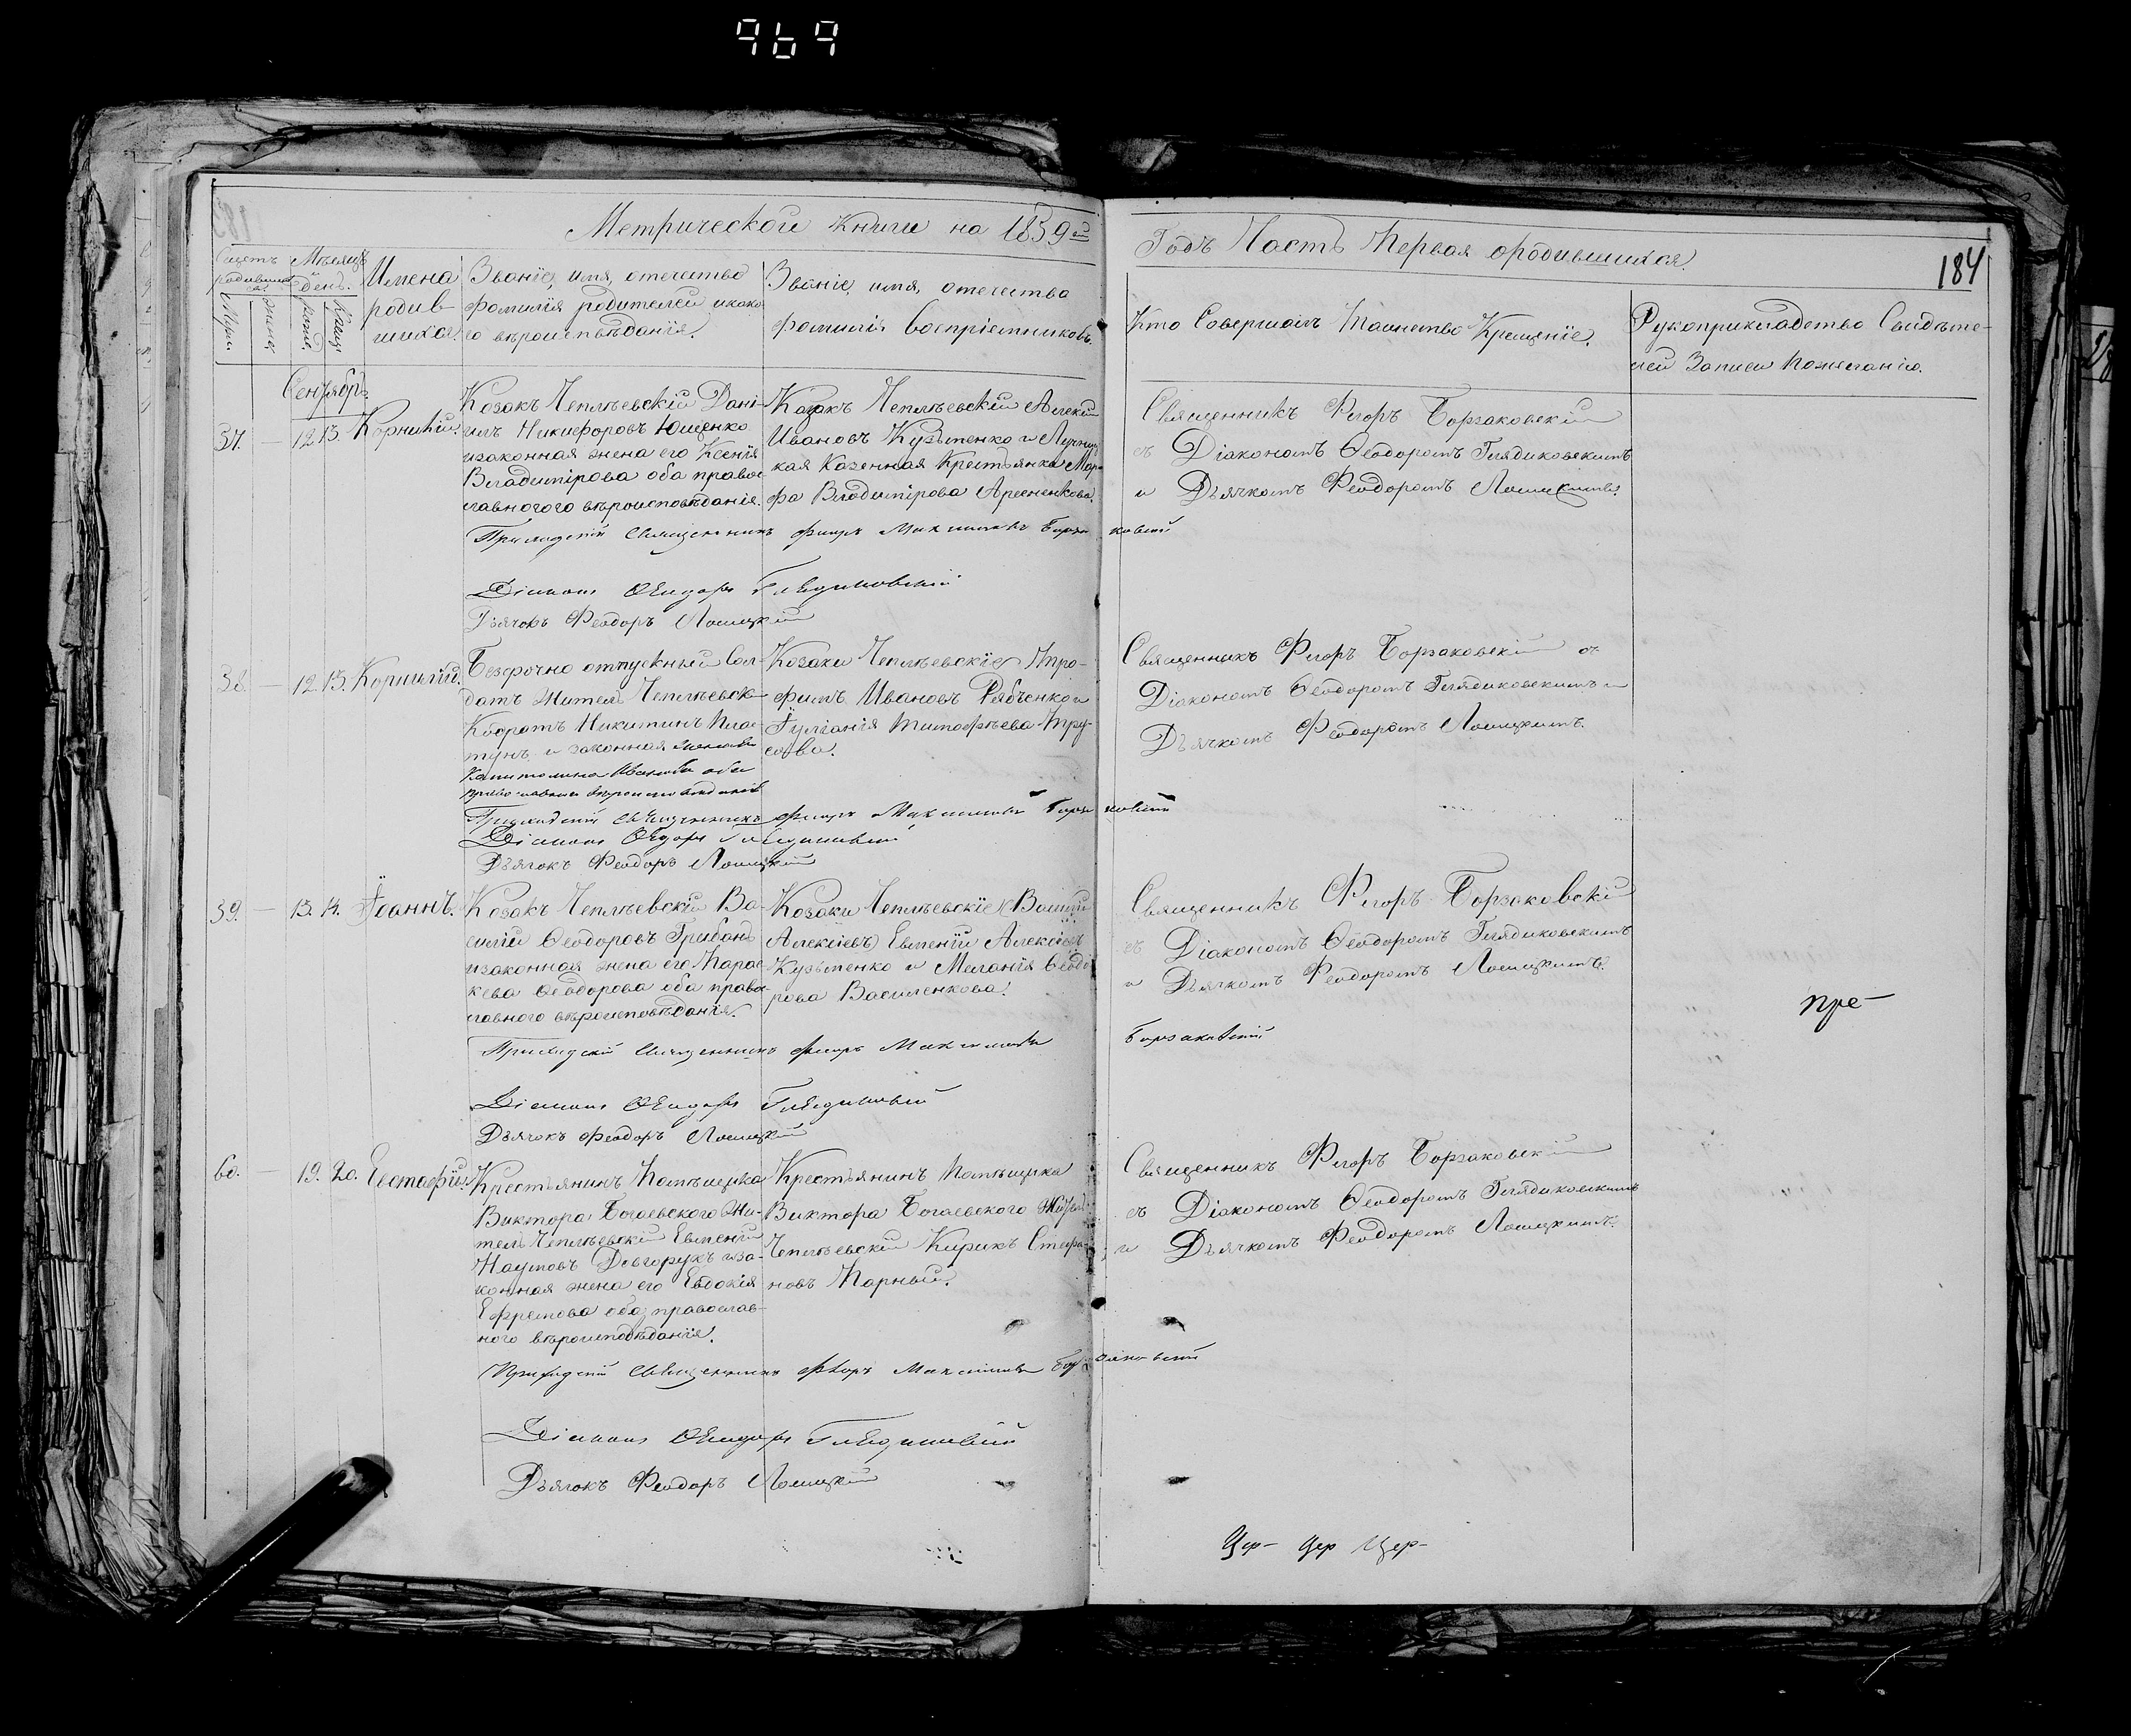 969
Метрической книги на 1859ый
Годъ Часть Первая о родившихся.
184
Счетъ родившихся
Муж.
Женск.
Мѣсяцъ и день.
рожд.
крещ.
Имена
родив-
шихся.
Званіе, имя, отечество
фамилія родителей и како
го вѣроисповѣданія.
Званіе, имя, отечество
фамилія Воспріемниковъ.
Кто Совершалъ Таинство Крещеніе.
Рукоприкладство Свидѣте-
лей Записи по желанію.
Сентябрь
57. — 12 13. Корнилій.
Козакъ Чепилѣевскій Дані-
илъ Никифоровъ Ющенко
и законная жена его Ксенія
Владимірова оба право-
славного вѣроисповѣданія.
Козакъ Чепилѣевскій Алексій
Ивановъ Кузьменко и
кая Казенная Крестьянка Мар-
фа Владимірова Арсененкова.
Священникъ Флоръ Борзаковскій
съ Діакономъ Ѳеодоромъ Глядиковскимъ
и Дьячкомъ Феодоромъ Лосицкимъ.
Приходскій Священникъ Флоръ Максимовъ Борзаковскій
Діаконъ Ѳеодоръ Глядиковскій
Дьячокъ Феодоръ Лосицкій
58. — 12 13. Корнилій.
Безсрочно отпускный Сол-
датъ Житель Чепилѣевск
Кодратъ Никитинъ Пла-
тунъ и законная жена его
Капитолина Иванова оба
православнаго вѣроисповѣданія
Козаки Чепилѣевскіе Тро-
фимъ Ивановъ Рябченко и
Гулханія Тимофѣева Тру-
сова.
Священникъ Флоръ Борзаковскій съ
Діакономъ Ѳеодоромъ Глядиковскимъ и
Дьячкомъ Феодоромъ Лосицкимъ.
Приходскій Священникъ Флоръ Максимовъ Борзаковскій
Діаконъ Ѳеодоръ Глядиковскій
Дьячокъ Феодоръ Лосицкій
59. — 13. 14. Іоаннъ.
Козакъ Чепилѣевскій Ва-
силій Ѳеодоровъ Грибанъ
и законная жена его Парас-
кева Ѳеодорова оба право-
славного вѣроисповѣданія.
Козаки Чепилѣевскіе (Василій
Алексіевъ) Евменій Алексіевъ
Кузьменко и Меланія Ѳеодо-
рова Василенкова.
Священникъ Флоръ Борзаковскій
съ Діакономъ Ѳеодоромъ Глядиковскимъ
и Дьячкомъ Феодоромъ Лосицкимъ.
пре-
Приходскій Священникъ Флоръ Максимовъ Борзаковскій
Діаконъ Ѳеодоръ Глядиковскій
Дьячокъ Феодоръ Лосицкій
60. — 19. 20. Евстафій.
Крестьянинъ Помѣщика
Виктора Богаевского Жи-
тель Чепилѣевскій Евменій
Наумовъ Довгорукъ и за-
конная жена его Евдокія
Ефремова оба православ-
ного вѣроисповѣданія.
Крестьянинъ Помѣщика
Виктора Богаевского Житель
Чепилѣевскій Кирикъ Стефа-
новъ Парный.
Священникъ Флоръ Борзаковскій
съ Діакономъ Ѳеодоромъ Глядиковскимъ
и Дьячкомъ Феодоромъ Лосицкимъ.
Приходскій Священникъ Флоръ Максимовъ Борзаковскій
Діаконъ Ѳеодоръ Глядиковскій
Дьячокъ Феодоръ Лосицкій
Цер- Цер Цер-